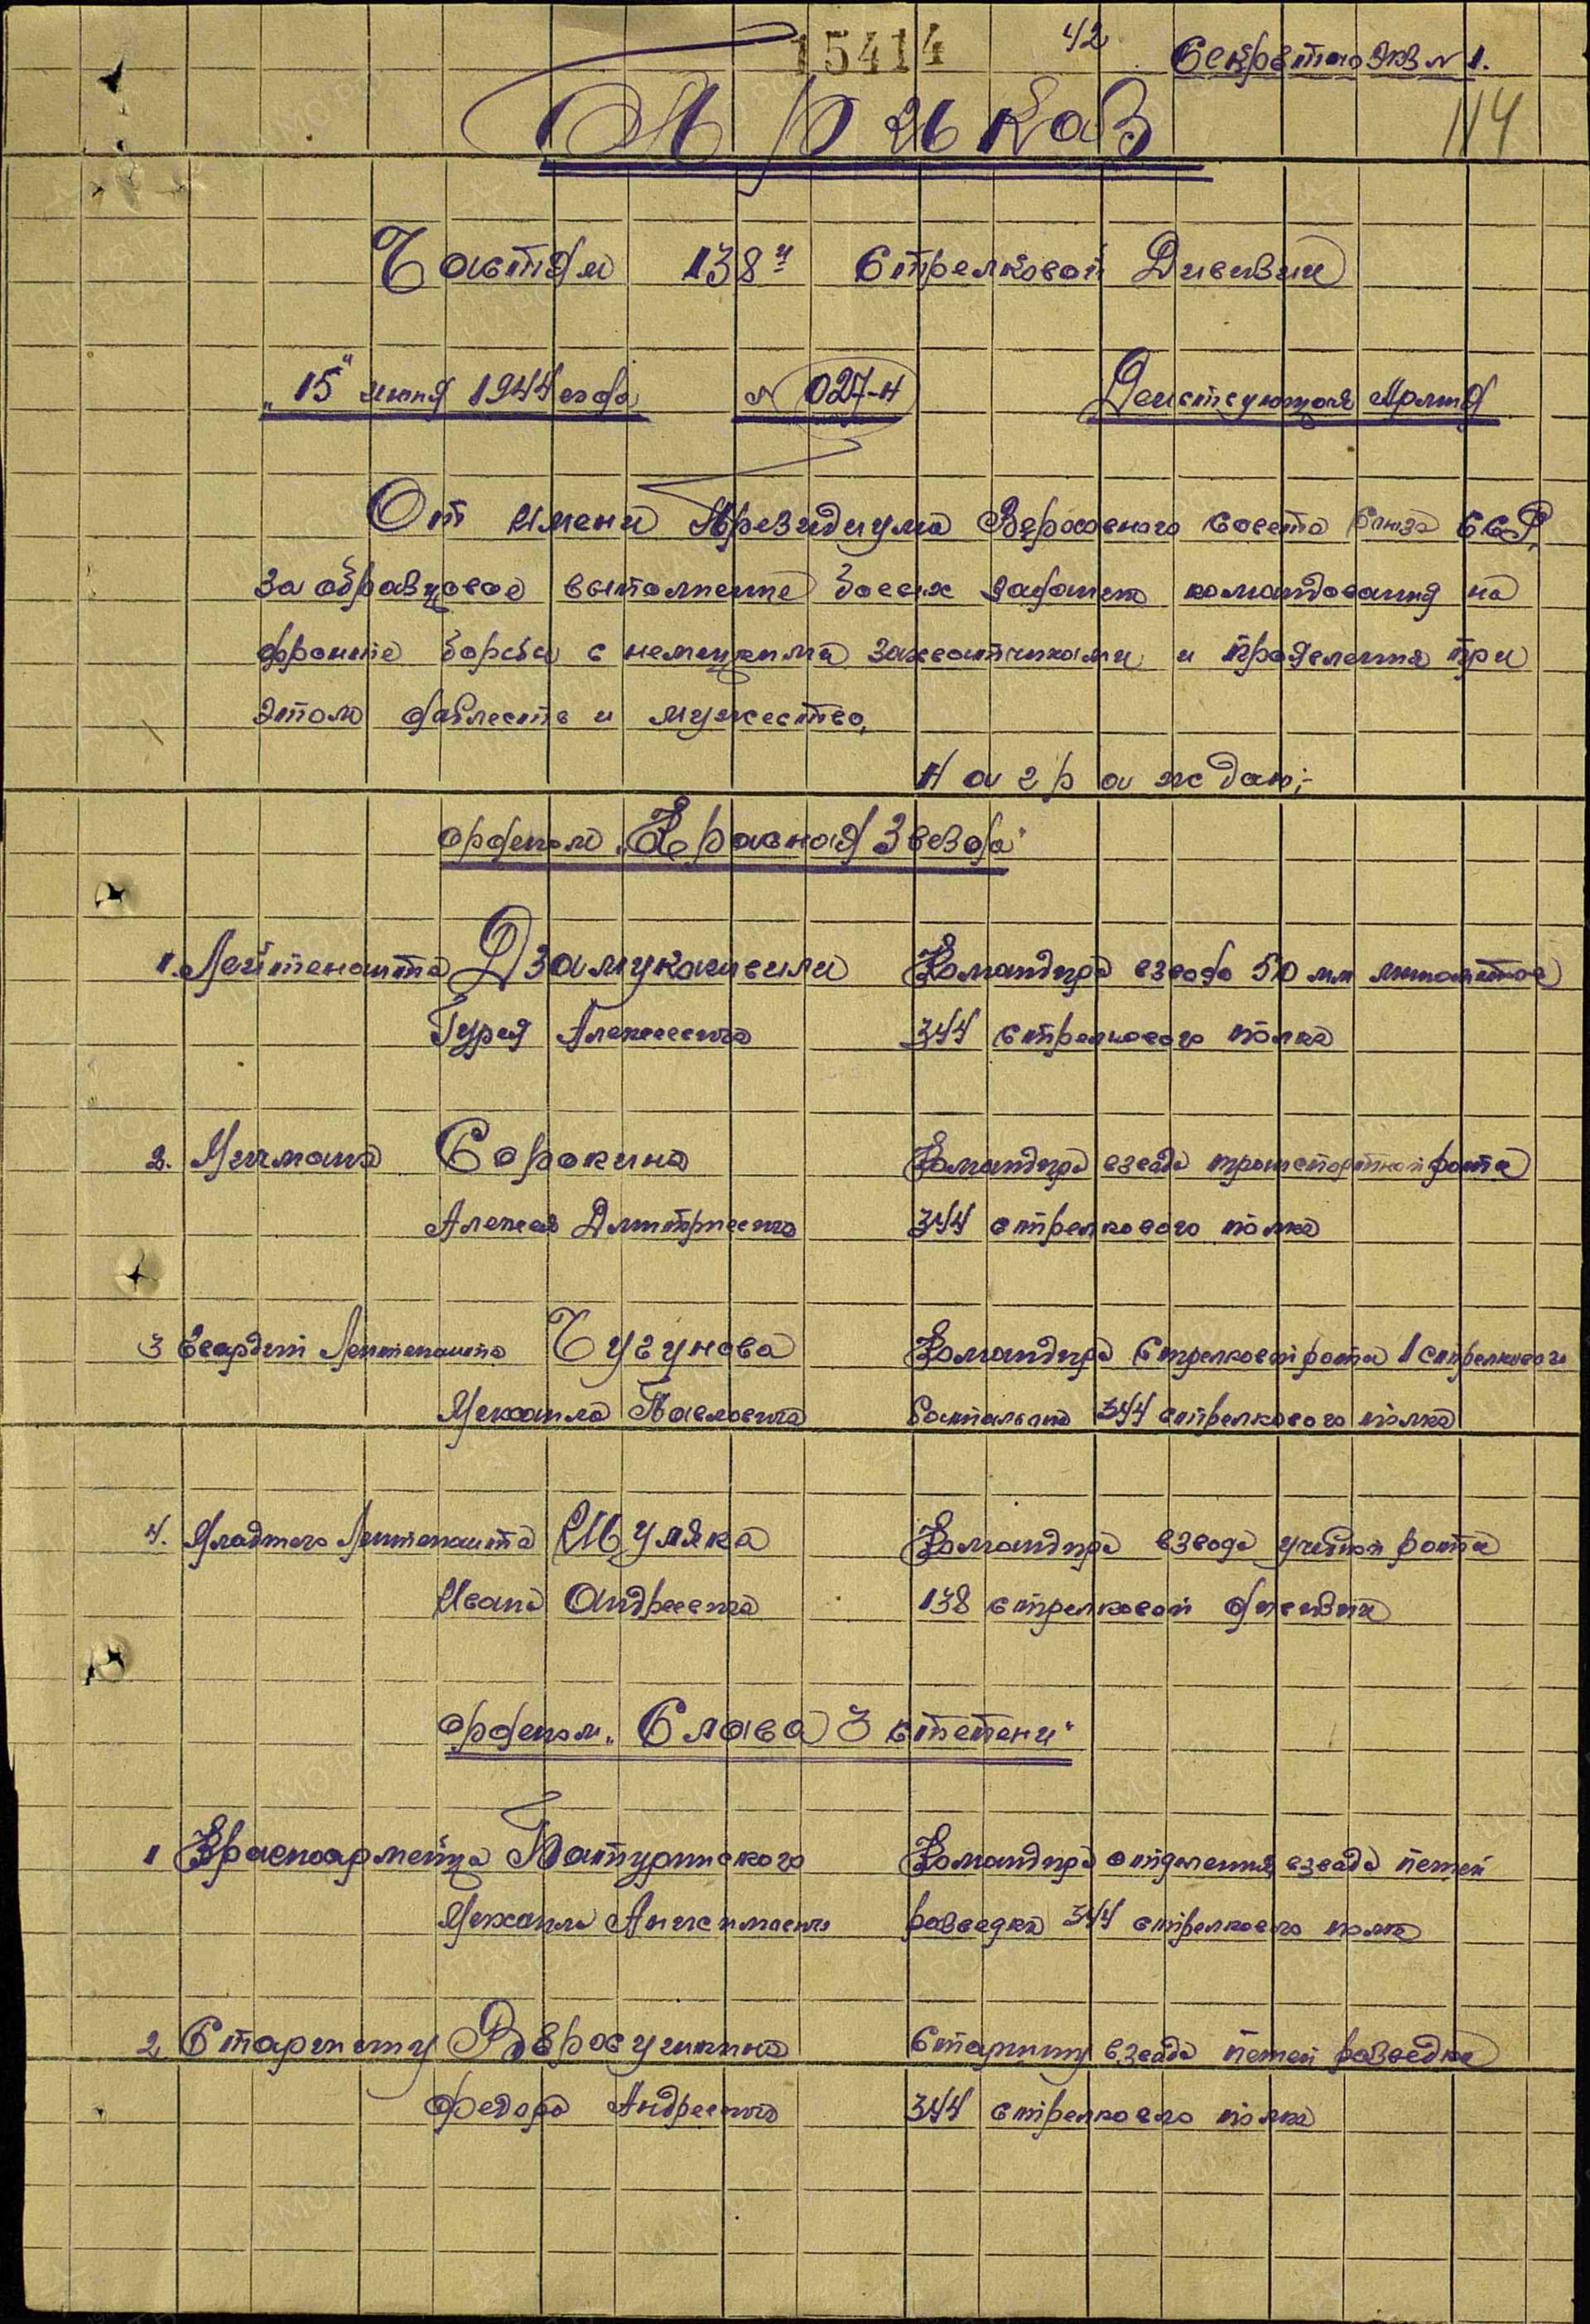 15414 42 Секретно Экз № 1.
114
Приказ
Частям 138й Стрелковой Дивизии
"15" июня 1944 года № 027-н Действующая Армия
От имени Президиума Верховного Совета Союза ССР,
за образцовое выполнение боевых задании командования на
фронте борьбы с немецкими захватчиками и проявления при
этом доблесть и мужество,
Награждаю:-
орденом "Красная Звезда"
1. Лейтенанта Дзамукашвили Командира взвода 50 мм минометов
Гурия Алексеевича 344 стрелкового полка
2. Мичмана Сорокина Командира взвода транспортной роты
Алексея Дмитриевича 344 стрелкового полка
3 Гвардии Лейтенанта Чугунова Командира Стрелковой роты 1 стрелкового
Михаила Павловича батальона 344 стрелкового полка
4. Младшего Лейтенанта Шуляка Командира взвода учебной роты
Ивана Андреевича 138 стрелковой дивизии
орденом "Слава 3 степени"
1 Красноармейца Батуринского Командира отделения взвода пешей
Михаила Анисимович разведки 344 стрелкового полка
2 Старшину Старшину взвода пешей разведки
Федора Андреевича 344 стрелкового полка